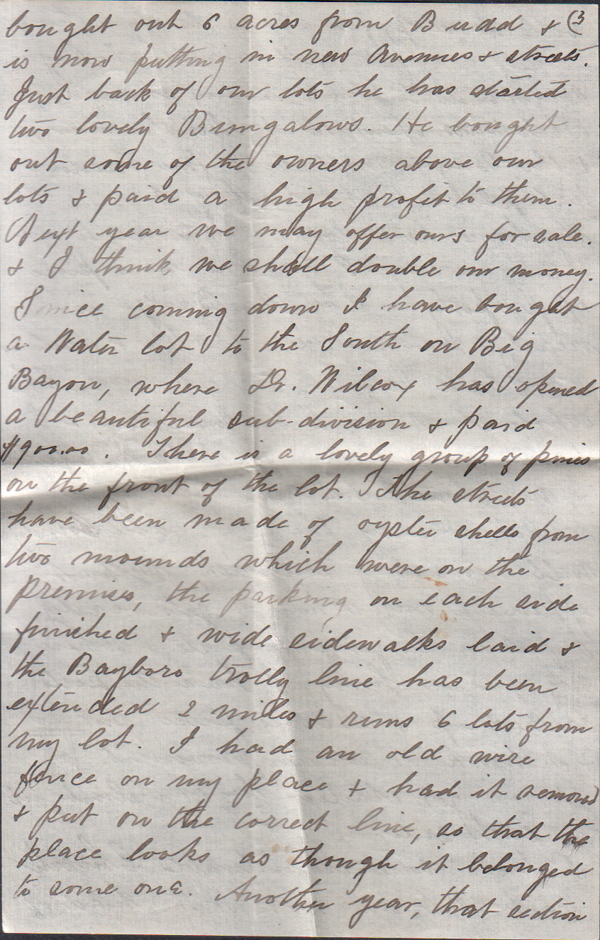 bought out 6 acres from Budd & (3
is now putting in new Avenues & streets.
Just back of our lots he has started
two lovely Bungalows. He bought
out some of the owners above our
lots & paid a high profit to them.
Next year we may offer ours for sale.
& I think we shall double our money.
Since coming down I have bought
a Water lot to the South on Big
Bayou, where Dr. Wilcox has opened
a beautiful sub-division & paid
$900.00. There is a lovely group of pines
on the front of the lot. The streets
have been made of oyster shells from
two mounds which were on the
premises, the parking on each side
finished & wide sidewalks laid &
the Bayboro trolly line has been
extended 2 miles & runs 6 lots from
my lot. I had an old wire
fence on my place & had it removed
& put on the correct line, so that the
place looks as though it belonged
to some one. Another year, that section